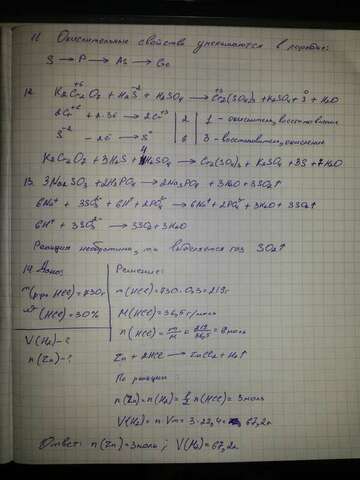 11. Окислительные свойства уменьшаются в порядке:
S → P → As → Ge
12. K2Cr2O7 + H2S + H2SO4 → Cr2(SO4)3 + K2SO4 + S + H2O
2Cr+6 + 2·3e → 2Cr+3 | 2 | 1 - окислитель, восстановление
S-2 - 2e → S0 | 6 | 3 - восстановитель, окисление
K2Cr2O7 + 3H2S + 4H2SO4 → Cr2(SO4)3 + K2SO4 + 3S + 7H2O
13. 3Na2SO3 + 2H3PO4 → 2Na3PO4 + 3H2O + 3SO2↑
6Na+ + 3SO3 2- + 6H+ + 2PO4 3- → 6Na+ + 2PO4 3- + 3H2O + 3SO2↑
6H+ + 3SO3 2- → 3SO2 + 3H2O
Реакция необратима, т.к выделяется газ SO2↑
14. Дано: Решение:
m(р-ра HCl) = 730г m(HCl) = 730·0,3 = 219г
w(HCl) = 30% M(HCl) = 36,5 г/моль
V(H2) - ? n(HCl) = m/M = 219/36,5 = 6 моль
n(Zn) - ? Zn + 2HCl → ZnCl2 + H2↑
По реакции
n(Zn) = n(H2) = 1/2 n(HCl) = 3 моль
V(H2) = n·Vm = 3·22,4 = 67,2л
Ответ: n(Zn) = 3 моль; V(H2) = 67,2л